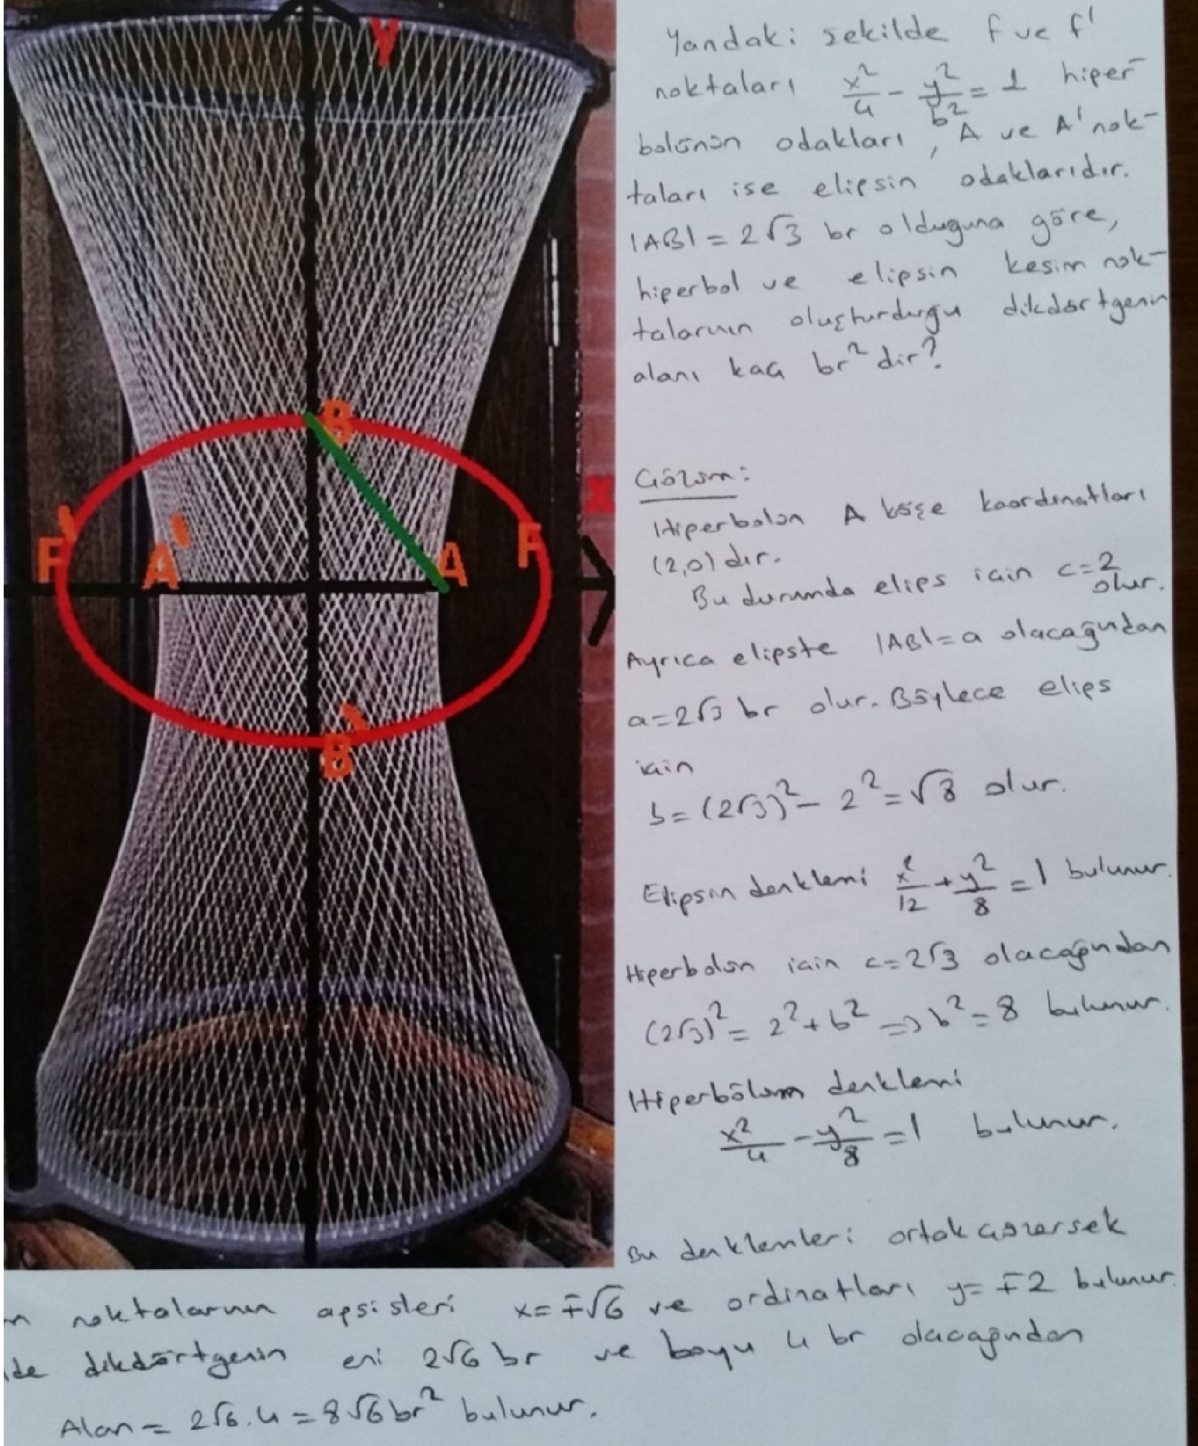 y
B
F'
A'
A
F
x
B'
Yandaki şekilde F ve F'
noktaları x²/4 - y²/b² = 1 hiper-
bolünün odakları, A ve A' nok-
taları ise elipsin odaklarıdır.
|AB| = 2√3 br olduğuna göre,
hiperbol ve elipsin kesim nok-
talarının oluşturduğu dikdörtgenin
alanı kaç br² dir?
Çözüm:
Hiperbolün A köşe koordinatları
(2,0) dır.
Bu durumda elips için c=2
olur.
Ayrıca elipste |AB|=a olacağından
a=2√3 br olur. Böylece elips
için
b= (2√3)² - 2² = √8 olur.
Elipsin denklemi x²/12 + y²/8 = 1 bulunur.
Hiperbolün için c=2√3 olacağından
(2√3)² = 2² + b² => b² = 8 bulunur.
Hiperbölüm denklemi
x²/4 - y²/8 = 1 bulunur.
Bu denklemleri ortak çözersek
n noktalarının apsisleri x= ∓√6 ve ordinatları y= ∓2 bulunur.
de dikdörtgenin eni 2√6 br ve boyu 4 br olacağından
Alan = 2√6 . 4 = 8√6 br² bulunur.